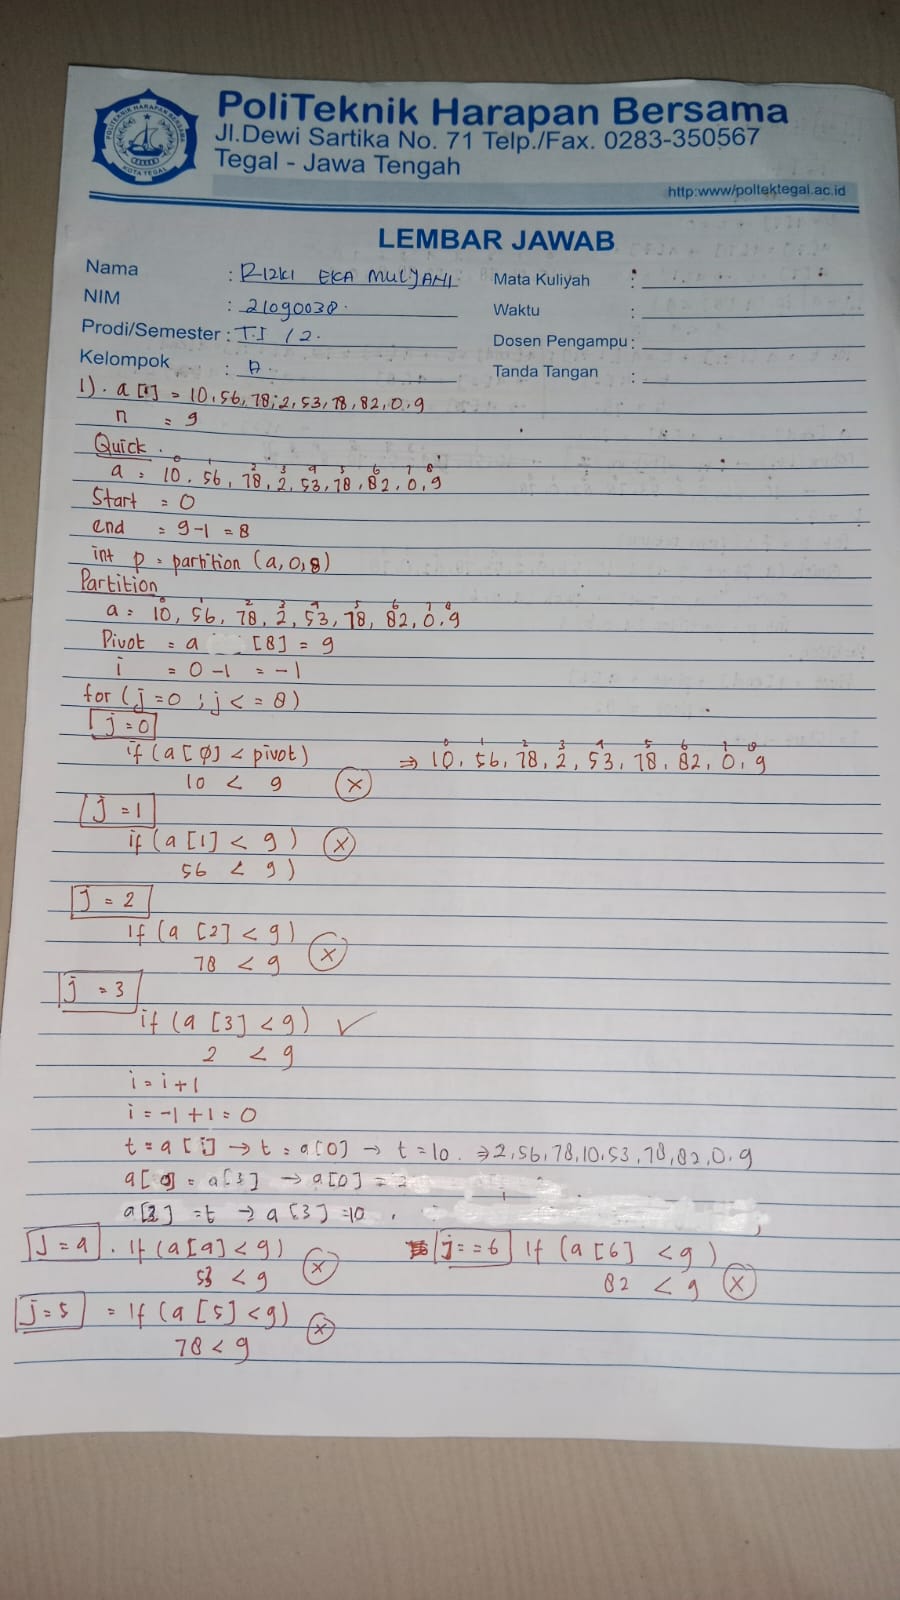 PoliTeknik Harapan Bersama
Jl.Dewi Sartika No. 71 Telp./Fax. 0283-350567
Tegal - Jawa Tengah
http:www/poltektegal.ac.id
LEMBAR JAWAB
Nama : RIZKI EKA MULYANI Mata Kuliyah :
NIM : 21090038. Waktu :
Prodi/Semester : T.I / 2. Dosen Pengampu :
Kelompok : A.. Tanda Tangan :
1). a [] = 10, 56, 78, 2, 53, 78, 82, 0, 9
n = 9
Quick.
0 1 2 3 4 5 6 7 8
a = 10, 56, 78, 2, 53, 78, 82, 0, 9
Start = 0
end = 9-1 = 8
int p = partition (a, 0, 8)
Partition
0 1 2 3 4 5 6 7 8
a = 10, 56, 78, 2, 53, 78, 82, 0, 9
Pivot = a [8] = 9
i = 0 - 1 = -1
for (j = 0 ; j <= 8)
j = 0
0 1 2 3 4 5 6 7 8
if (a [0] < pivot) ⇒ 10, 56, 78, 2, 53, 78, 82, 0, 9
10 < 9 (x)
j = 1
if (a [1] < 9) (x)
56 < 9)
j = 2
if (a [2] < 9)
78 < 9 (x)
j = 3
if (a [3] < 9) ✓
2 < 9
i = i + 1
i = -1 + 1 = 0
t = a [i] → t = a [0] → t = 10. ⇒ 2, 56, 78, 10, 53, 78, 82, 0, 9
a [0] = a [3] → a [0] = 2
a [3] = t → a [3] = 10.
j = 4 . If (a [4] < 9) j = = 6 If (a [6] < 9)
53 < 9 (x) 82 < 9 (x)
j = 5 = If (a [5] < 9)
78 < 9 (x)